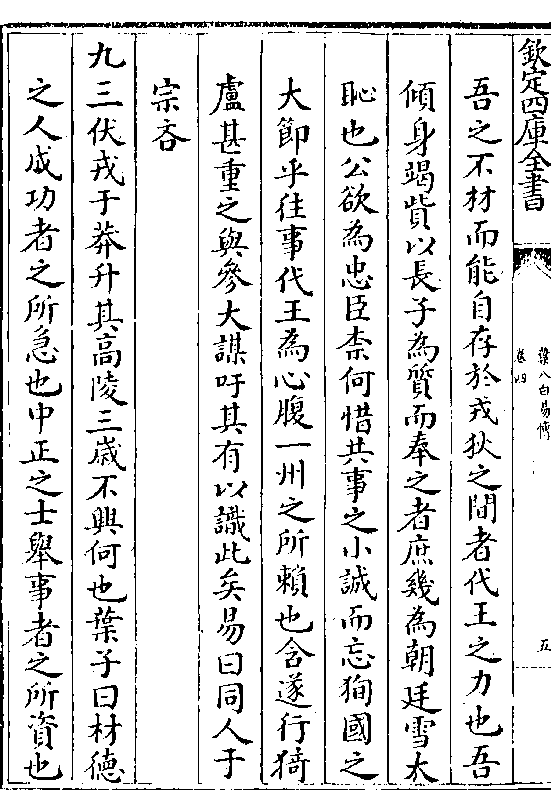 欽定四庫全書
葉八白易傳
卷四
五
吾之不材而能自存於戎狄之間者代王之力也吾
傾身竭貲以長子為質而奉之者庶幾為朝廷雪大
恥也公欲為忠臣柰何惜共事之小誠而忘狥國之
大節乎往事代王為心腹一州之所賴也含遂行猗
盧甚重之與參大謀吁其有以識此矣易曰同人于
宗吝
九三伏戎于莽升其高陵三歳不興何也葉子曰材徳
之人成功者之所急也中正之士舉事者之所資也